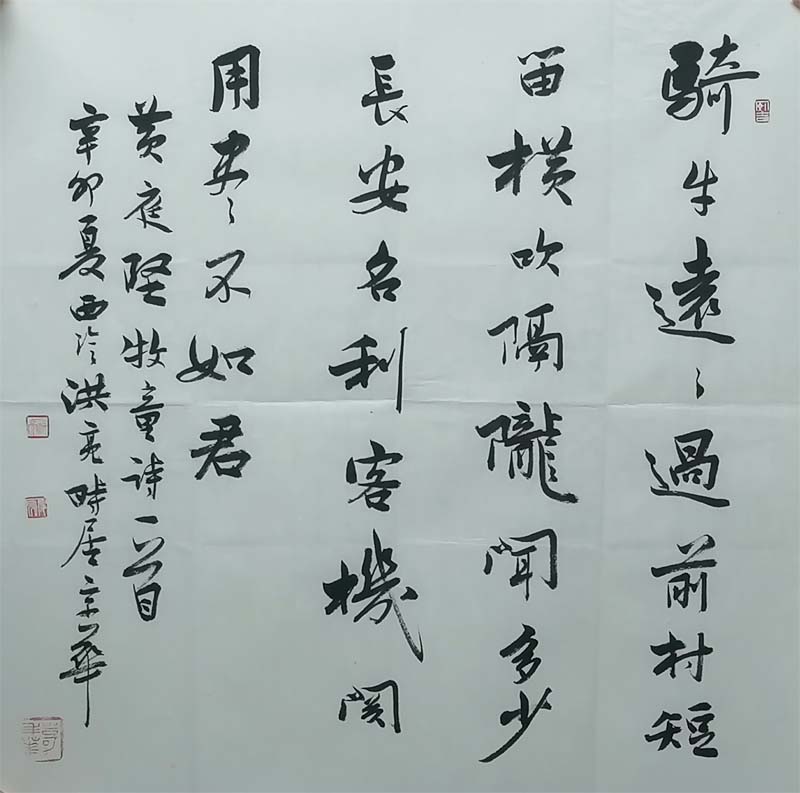 騎牛遠々過前村短
笛横吹隔隴聞多少
長安名利客機関
用尽々不如君
黄庭堅牧童诗一首
辛卯夏西泠洪亮时居京華